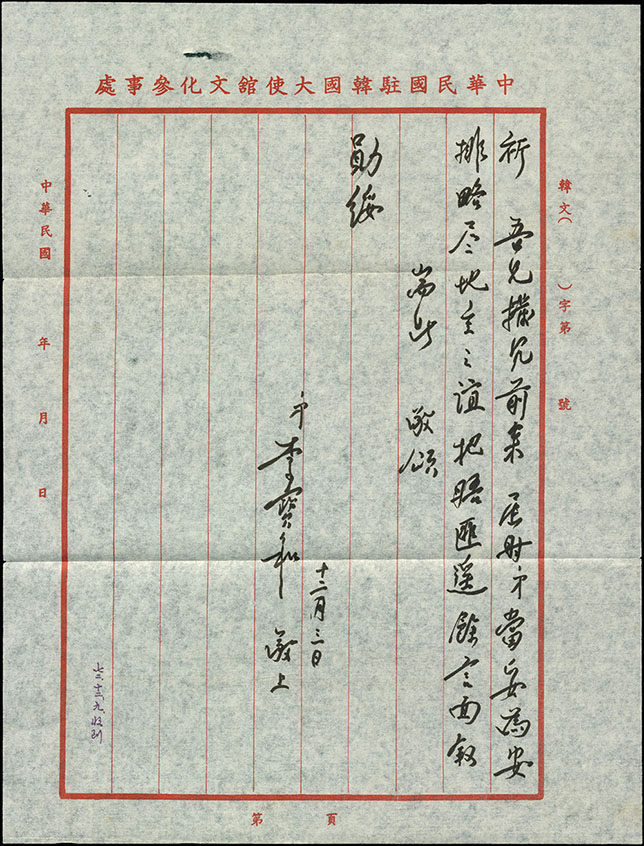 中華民國駐韓國大使館文化參事處
韓文（　　）字第　　號
祈　吾兄撥冗前來　屆時弟當妥為安
排略尽地主之誼把晤匪遙餘言面敘
耑此　敬頌
勛綏
弟李寶和敬上
十二月三日
中華民國　　年　　月　　日
七三、十二、九、收到
第　　頁